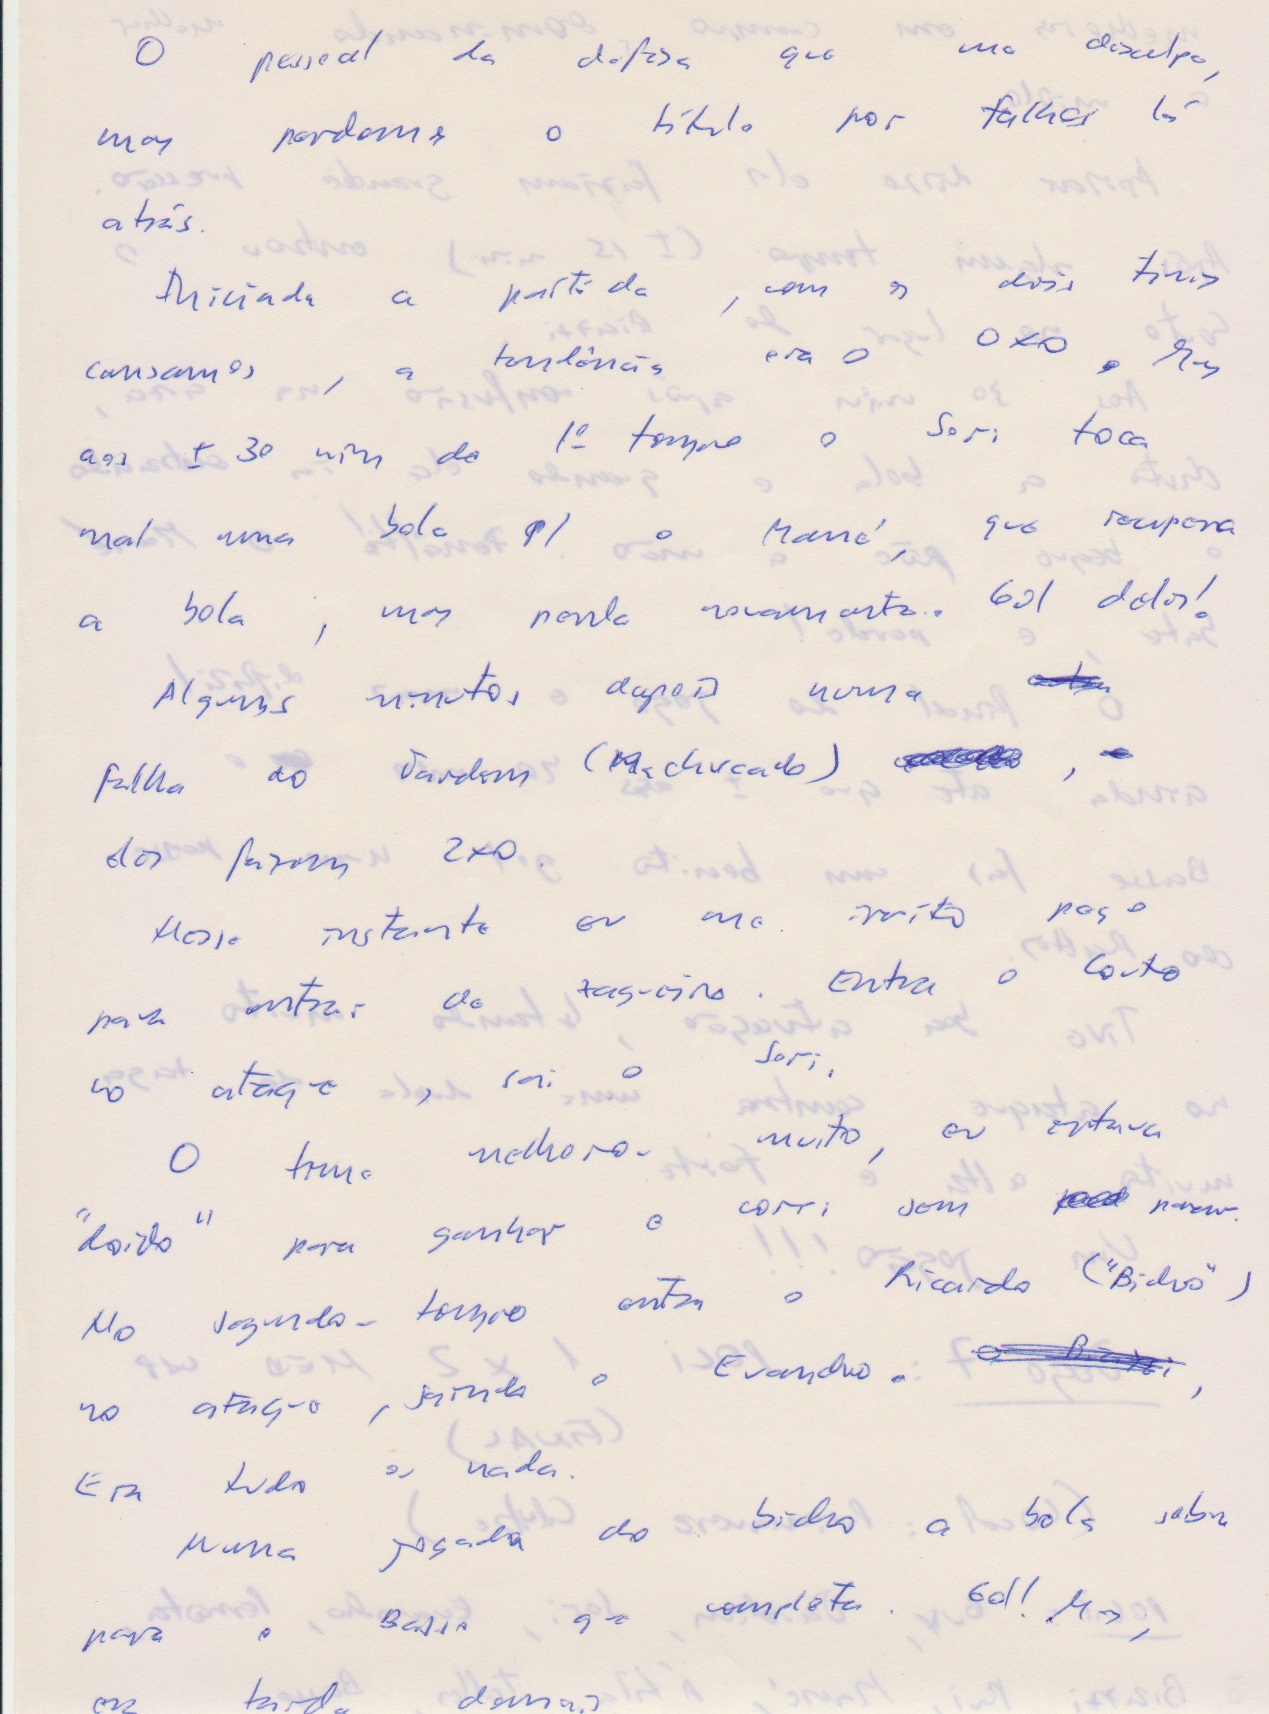 O pessoal da defesa que me desculpe,
mas perdemos o título por falhas lá
atrás.
Iniciada a partida, com os dois times
cansamos, a tendência era o 0x0. Mas
aos ± 30 min do 1º tempo o Sori toca
mal uma bola p/ o Mané, que recupera
a bola, mas perde novamente. Gol deles!
Alguns minutos depois numa
falha do Vardem (Machucado),
eles fazem 2x0.
Nesse instante eu me irrito peço
para entrar de zagueiro. Entra o Couto
no ataque, sai o Sori.
O time melhorou muito, eu estava
"doido" para ganhar e corri sem parar.
No segundo tempo entra o Ricardo ("Bidro")
no ataque, saindo o Evandro.
Era tudo ou nada.
Numa jogada do Bidro a bola sobra
para o Basse que completa. Gol! Mas,
era tarde demais